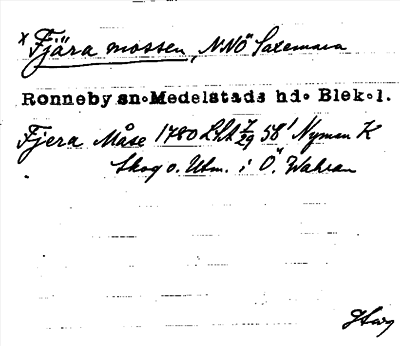 x Fjära mossen, NNÖ Saxemara
Ronneby sn. Medelstads hd. Blek.l.
Fjera Måse 1780 LSA 7/29 58¹ Nyman K
Skog o. Utm. i Ö. Wahran